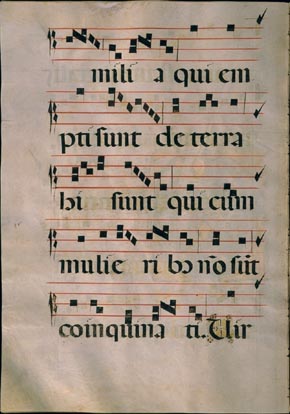 mili a qui em
pti sunt de terra
hi sunt qui cum
mulie ri bꝰ nõ sūt
coinquina ti. Vir